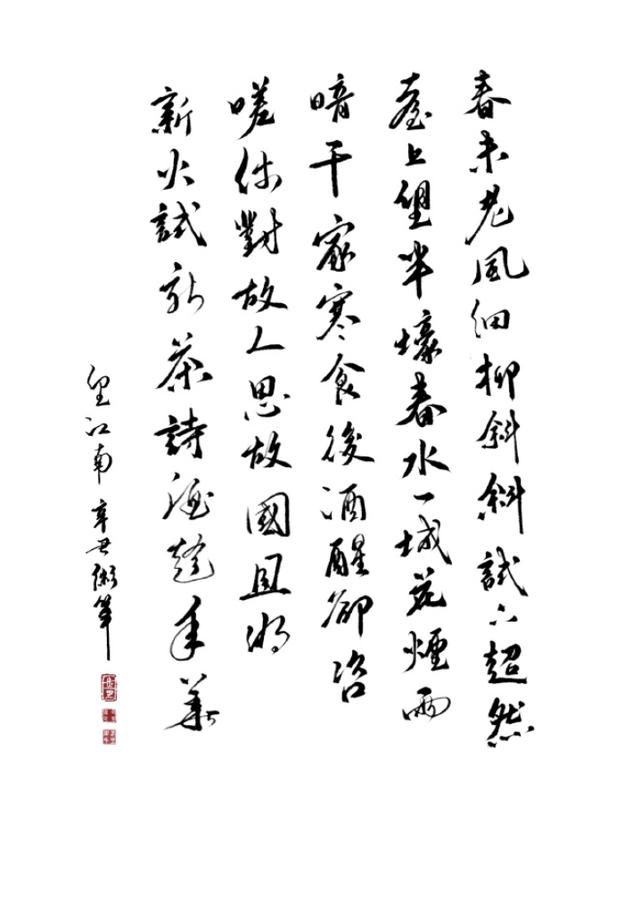 春未老風細柳斜斜試上超然
臺上望半壕春水一城花煙雨
暗千家寒食後酒醒卻咨
嗟休對故人思故國且將
新火試新茶詩酒趁年華
望江南 辛 筆